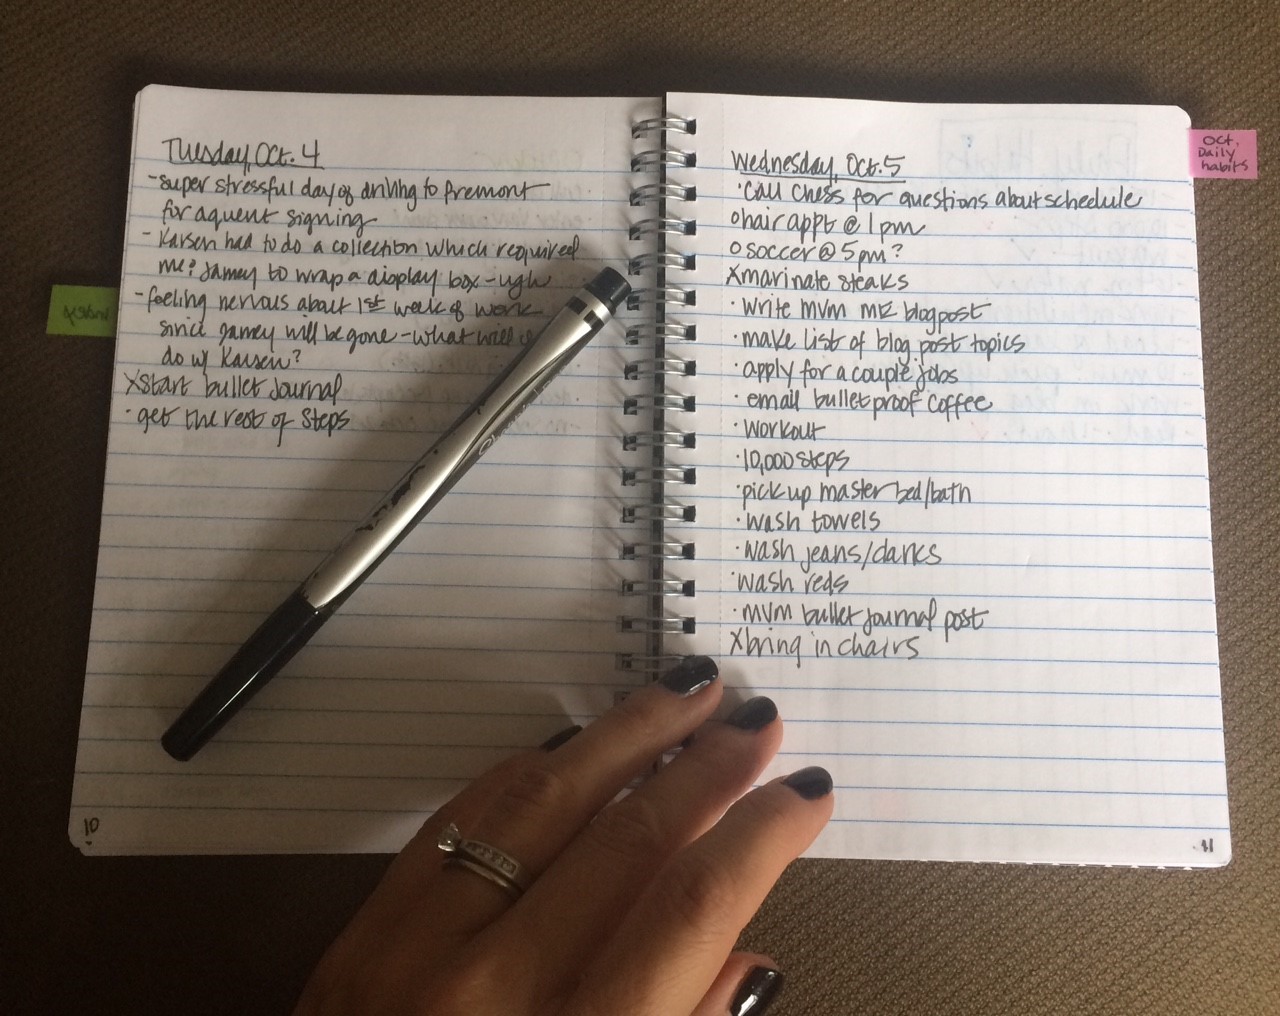 Tuesday, Oct. 4
- super stressful day of driving to Fremont
for aquent signing
- Karsen had to do a collection which required
me & Jamey to wrap a display box - ugh
- feeling nervous about 1st week of work
since Jamey will be gone - what will
do w/ Karsen?
X start bullet journal
· get the rest of steps
10
Wednesday, Oct. 5
· call chess for questions about schedule
o hair appt @ 1pm
o soccer @ 5pm?
X marinate steaks
· write MVM ME blog post
· make list of blog post topics
· apply for a couple jobs
· email bulletproof coffee
· workout
· 10,000 steps
· pick up master bed/bath
· wash towels
· wash jeans/darks
· wash reds
· MVM bullet journal post
X bring in chairs
11
Oct.
Daily
habits